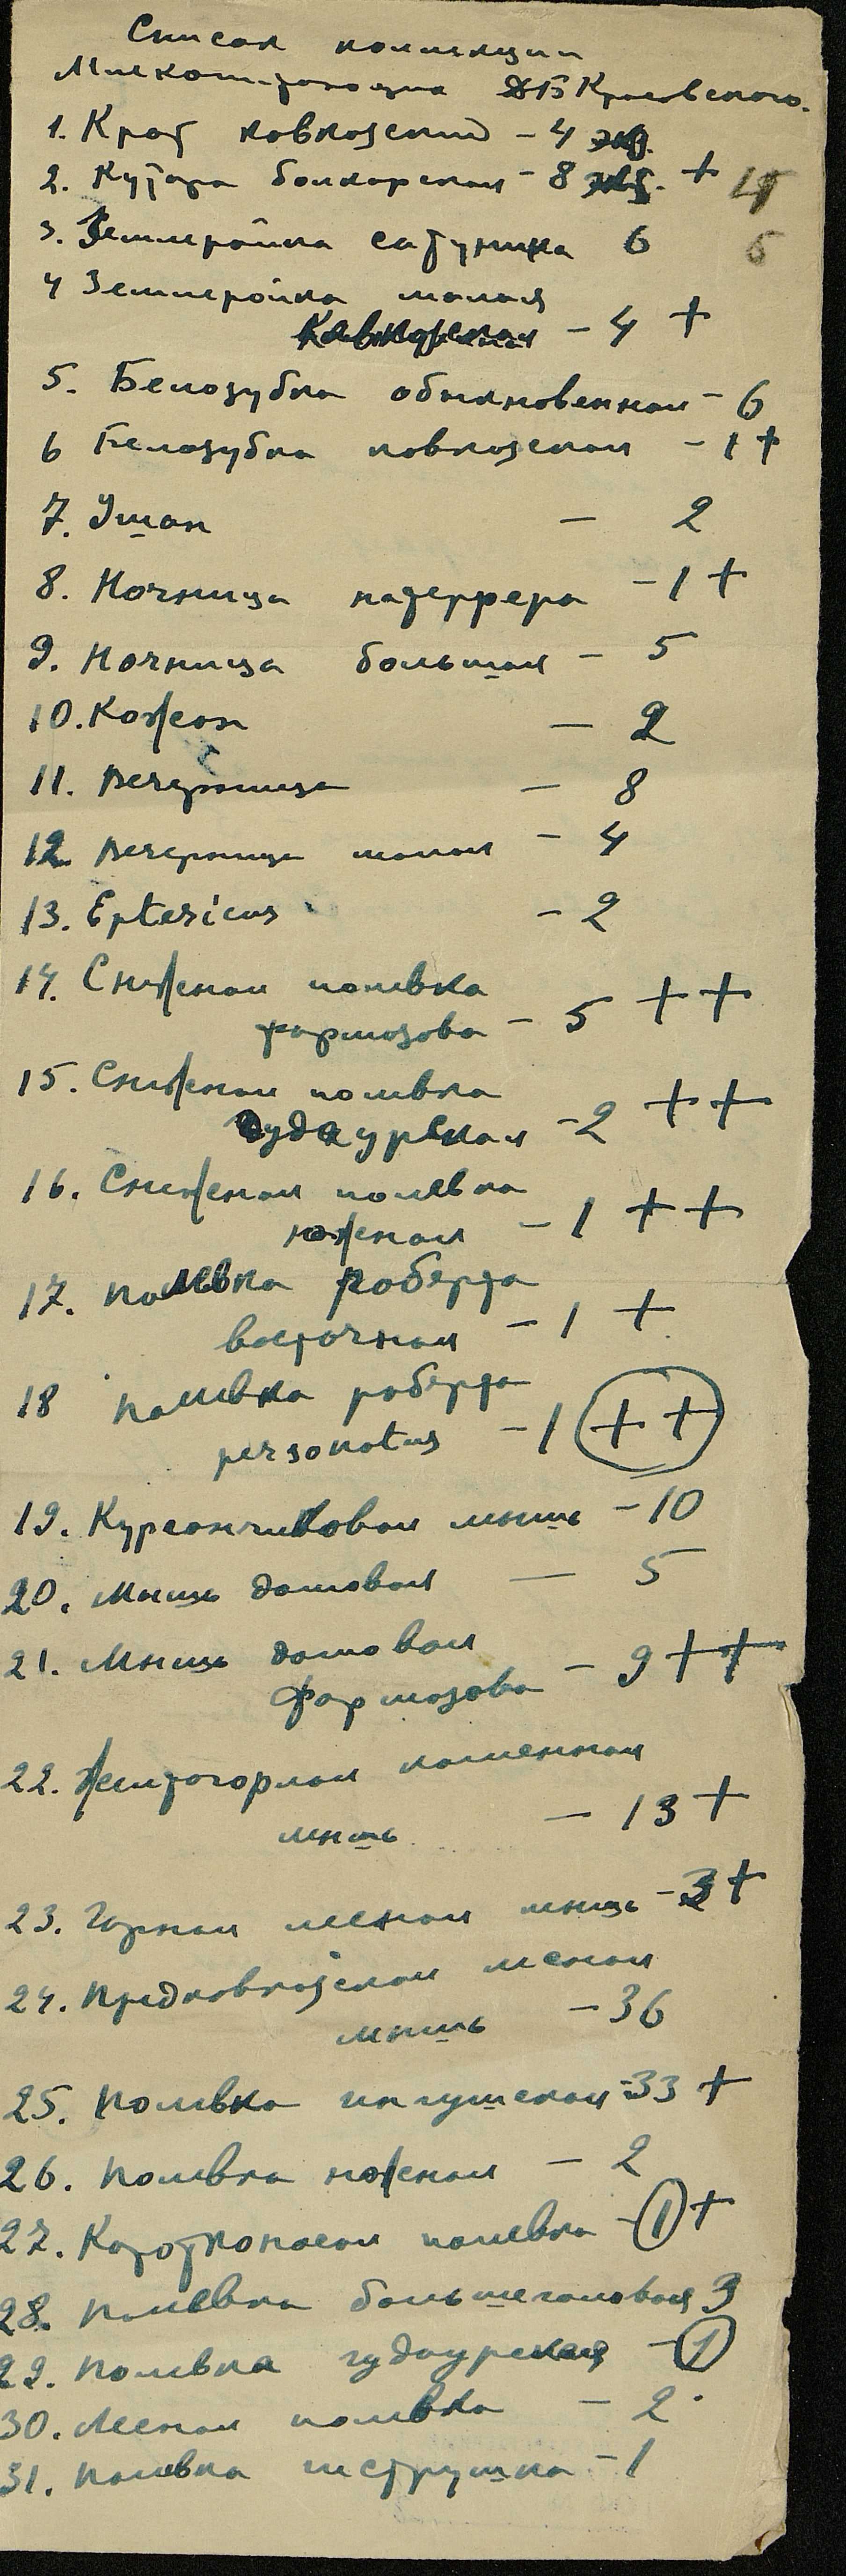 Список коллекции
Млекопитающих Д Б Красовского.
1. Крот кавказский – 4 экз.
2. Кутора балкарская – 8 экз. +
3. Землеройка сатунина 6 6
4 Землеройка малая
Кавказская – 4 +
5. Белозубка обыкновенная – 6
6 Белозубка кавказская – 1 +
7. Ушан – 2
8. Ночница наттерера – 1 +
9. Ночница большая – 5
10. Кожан – 2
11. Вечерница – 8
12. Вечерница малая – 4
13. Eptesicus – 2
14. Снежная полевка
формозова – 5 + +
15. Снежная полевка
гудаурская – 2 + +
16. Снежная полевка
южная – 1 + +
17. Полевка роберта
восточная – 1 +
18 Полевка роберта
personatus – 1 + +
19. Курганчиковая мышь – 10
20. Мышь домовая – 5
21. Мышь домовая
формозова – 9 + +
22. Желтогорлая каменная
мышь – 13 +
23. Горная лесная мышь – 3 +
24. Предкавказская лесная
мышь – 36
25. Полевка ингушская – 33 +
26. Полевка южная – 2
27. полевка – 1 +
28. Полевка 3
29. Полевка гудаурская – 1
30. Лесная полевка – 2
31. Полевка пеструшка – 1